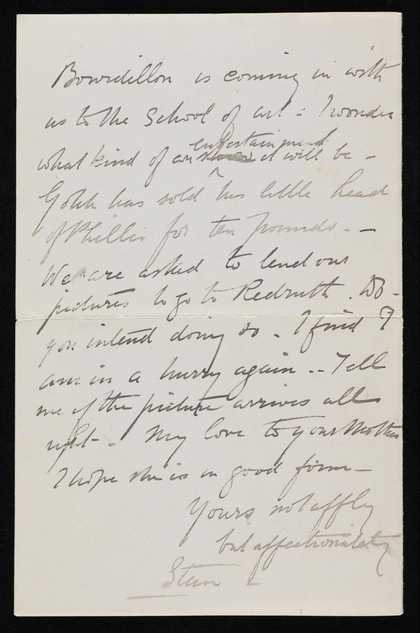 Bourdillon is coming in with
us to the School of art: I wonder
what kind of an entertainment it will be –
Gotch has sold his little head
of Phillis for ten pounds. –
We are asked to lend our
pictures to go to Redruth. Do
you intend doing so. I find I
am in a hurry again.. Tell
me if the picture arrives all
right. My love to your Mother
I hope she is in good form –
Yours not affly
but affectionately